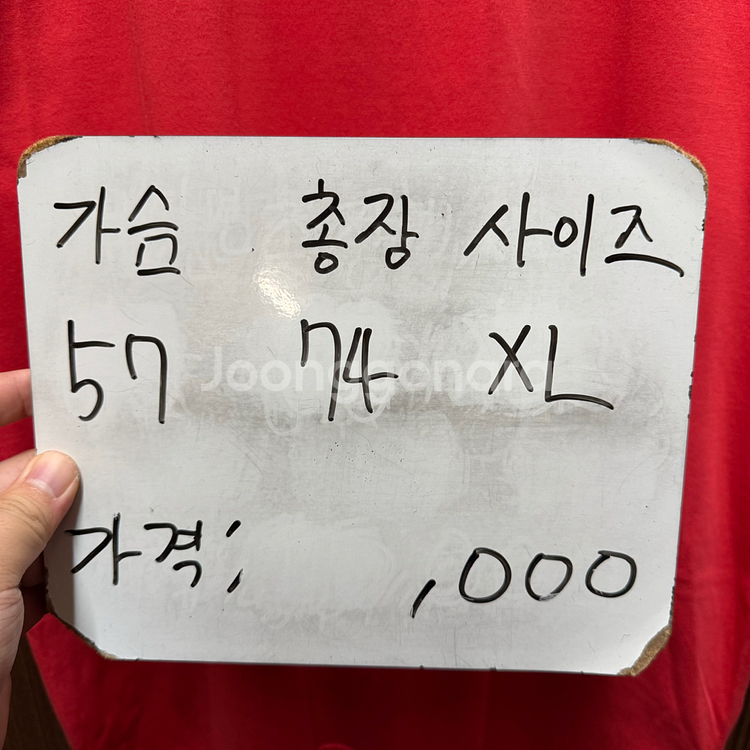 가슴 총장 사이즈
57 74 XL
Joonggonara
가격; ,000